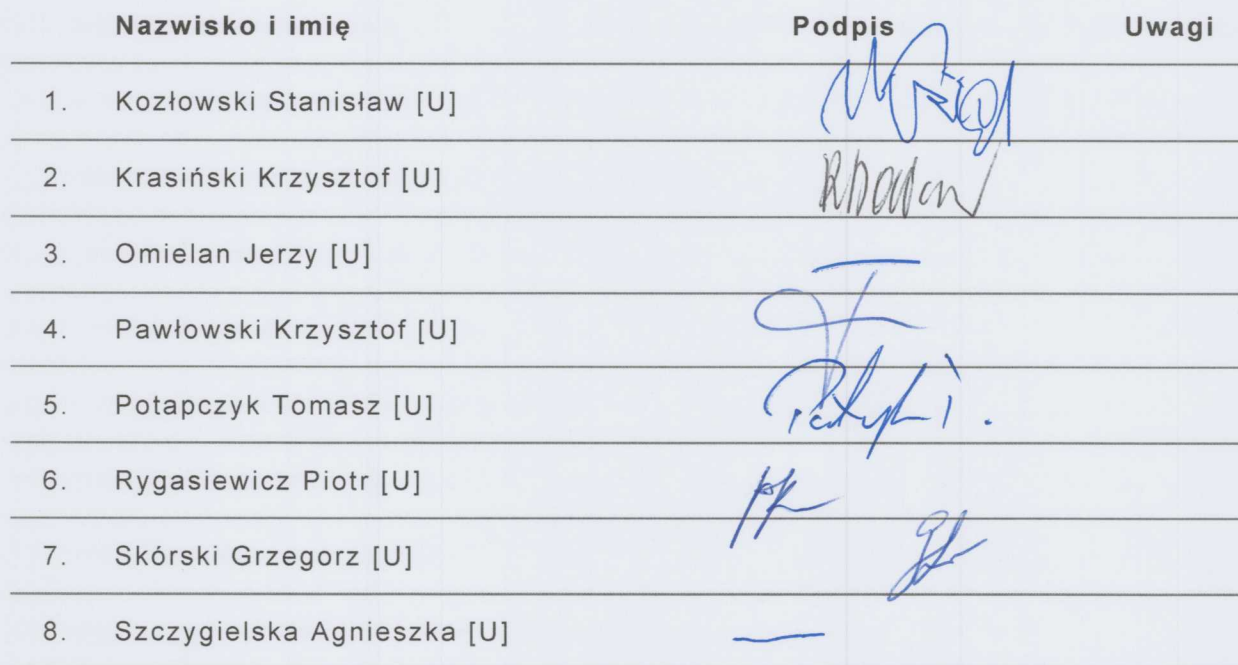 Nazwisko i imię Podpis Uwagi
1. Kozłowski Stanisław [U]
2. Krasiński Krzysztof [U]
3. Omielan Jerzy [U] —
4. Pawłowski Krzysztof [U]
5. Potapczyk Tomasz [U]
6. Rygasiewicz Piotr [U]
7. Skórski Grzegorz [U]
8. Szczygielska Agnieszka [U] —